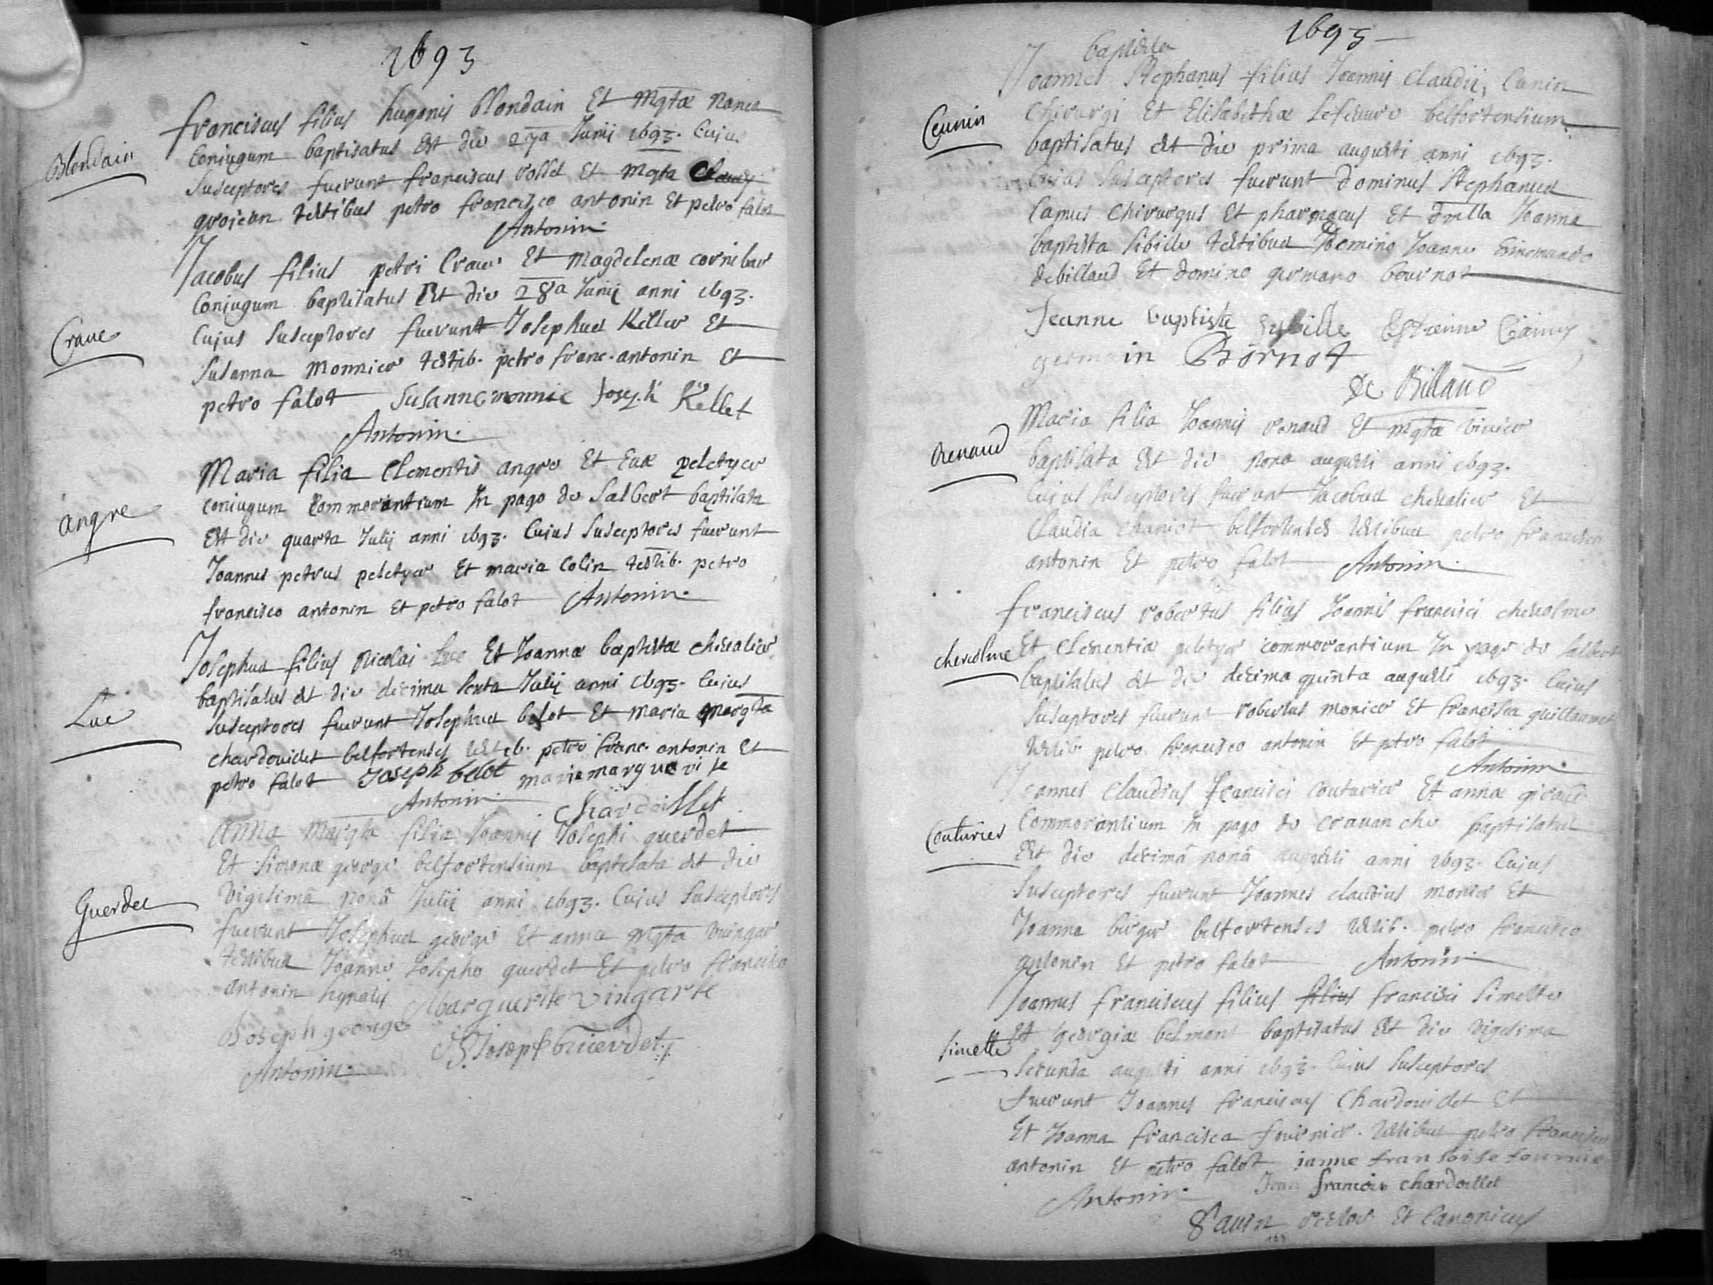 1693
Blondain
franciscus filius hugonis blondain Et Mgtæ
Coniugum baptisatus Est die 27a Junij 1693. Cuius
Susceptores fuerunt franciscus rosset Et Mgta
testibus petro francisco antonin Et petro falot
Antonin.
Craue
Jacobus filius petri Craue Et Magdelenæ
Coniugum baptisatus Est die 28a Junij anni 1693.
Cuius Susceptores fuerunt Josephus Keller Et
Susanna Monnier testib. petro franc. antonin Et
petro falot Susanne monnie Joseph Kellet
Antonin.
angre
Maria filia Clementis angre Et Euæ peletyer
coniugum Commorantium In pago de Salbert baptisata
Est die quarta Julij anni 1693. Cuius Susceptores fuerunt
Joannes petrus peletyer Et maria Colin testib. petro
francisco antonin Et petro falot Antonin.
Luc
Josephus filius Nicolai Luc Et Joannæ baptistæ cheualier
baptisatus est die decima Sexta Julij anni 1693. Cuius
Susceptores fuerunt Josephus belot Et Maria Margta
chardouillet belfortenses testib. petro franc. antonin Et
petro falot Joseph belot marie marguerite
Antonin. Chardoillet
Guerdet
Anna Margta filia Joannis Josephi guerdet
Et Simonæ george belfortensium baptisata est die
vigesimâ nonâ Julij anni 1693. Cuius Susceptores
fuerunt Josephus george Et anna Mgta vuingar
testibus Joanne Josepho guerdet Et petro francisco
antonin Marguerite vingarte
Joseph george J Joseph Guerdet
Antonin.
1693
baptista
Ceunin
Joannes Stephanus filius Joannis Claudii, Cunin
Chirurgi Et Elisabethæ Lefeuure belfortensium
baptisatus est die prima augusti anni 1693.
Cuius Susceptores fuerunt Dominus Stephanus
Camus Chirurgus Et pharmacus Et dnlla Joanna
baptista Sibille testibus Domino Joanne
debillaud Et domino germano bournot
Jeanne baptiste Sybille Estienne Camus
germain Bornot
De Billaud
Renaud
Maria filia Joannis renaud Et Mgtæ
baptisata Est die Nona augusti anni 1693.
Cuius Susceptores fuerunt Jacobus cheualier Et
Claudia Chariot belfortenses testibus petro francisco
antonin Et petro falot Antonin.
cheuolme
franciscus robertus filius Joannis francisci cheuolme
Et Clementiæ peletyer commorantium In pago de Salbert
baptisatus est die decima quinta augusti 1693. Cuius
Susceptores fuerunt robertus monier Et francisca guillaumet
testib petro francisco antonin Et petro falot
Antonin.
Couturier
Joannes Claudius francisci couturier Et annæ girard
Commorantium In pago de Crauanche baptisatus
Est die decimâ nonâ augusti anni 1693. Cuius
Susceptores fuerunt Joannes claudius monier Et
Joanna belfortenses testib. petro francisco
antonin Et petro falot Antonin.
Simette
Joannes franciscus filius filius francisci Simette
Et georgiæ belmont baptisatus Est die vigesima
Secunda augusti anni 1693. Cuius Susceptores
fuerunt Joannes franciscus Chardouillet Et
Et Joanna francisca fournier. testibus petro francisco
antonin Et petro falot ianne fransoise fournie
Antonin. Jean francois chardoillet
rector Et Canonicus